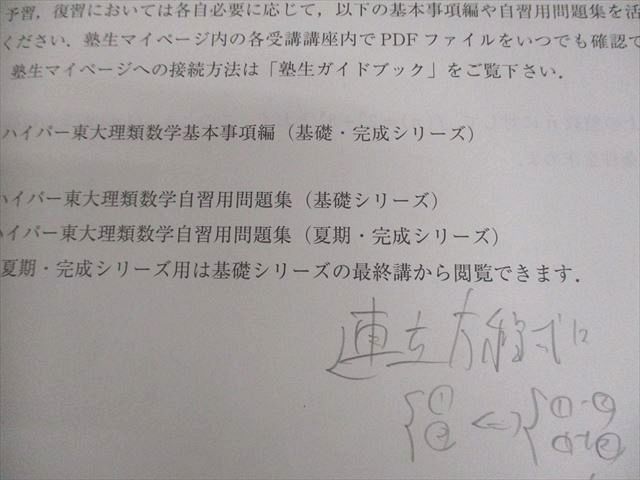 予習，復習においては各自必要に応じて，以下の基本事項編や自習用問題集を活
ください．塾生マイページ内の各受講講座内でPDFファイルをいつでも確認で
塾生マイページへの接続方法は「塾生ガイドブック」をご覧下さい．
ハイパー東大理類数学基本事項編（基礎・完成シリーズ）
ハイパー東大理類数学自習用問題集（基礎シリーズ）
ハイパー東大理類数学自習用問題集（夏期・完成シリーズ）
夏期・完成シリーズ用は基礎シリーズの最終講から閲覧できます．
連立方程式は
{① ⇔ {①-②
{② {①+②